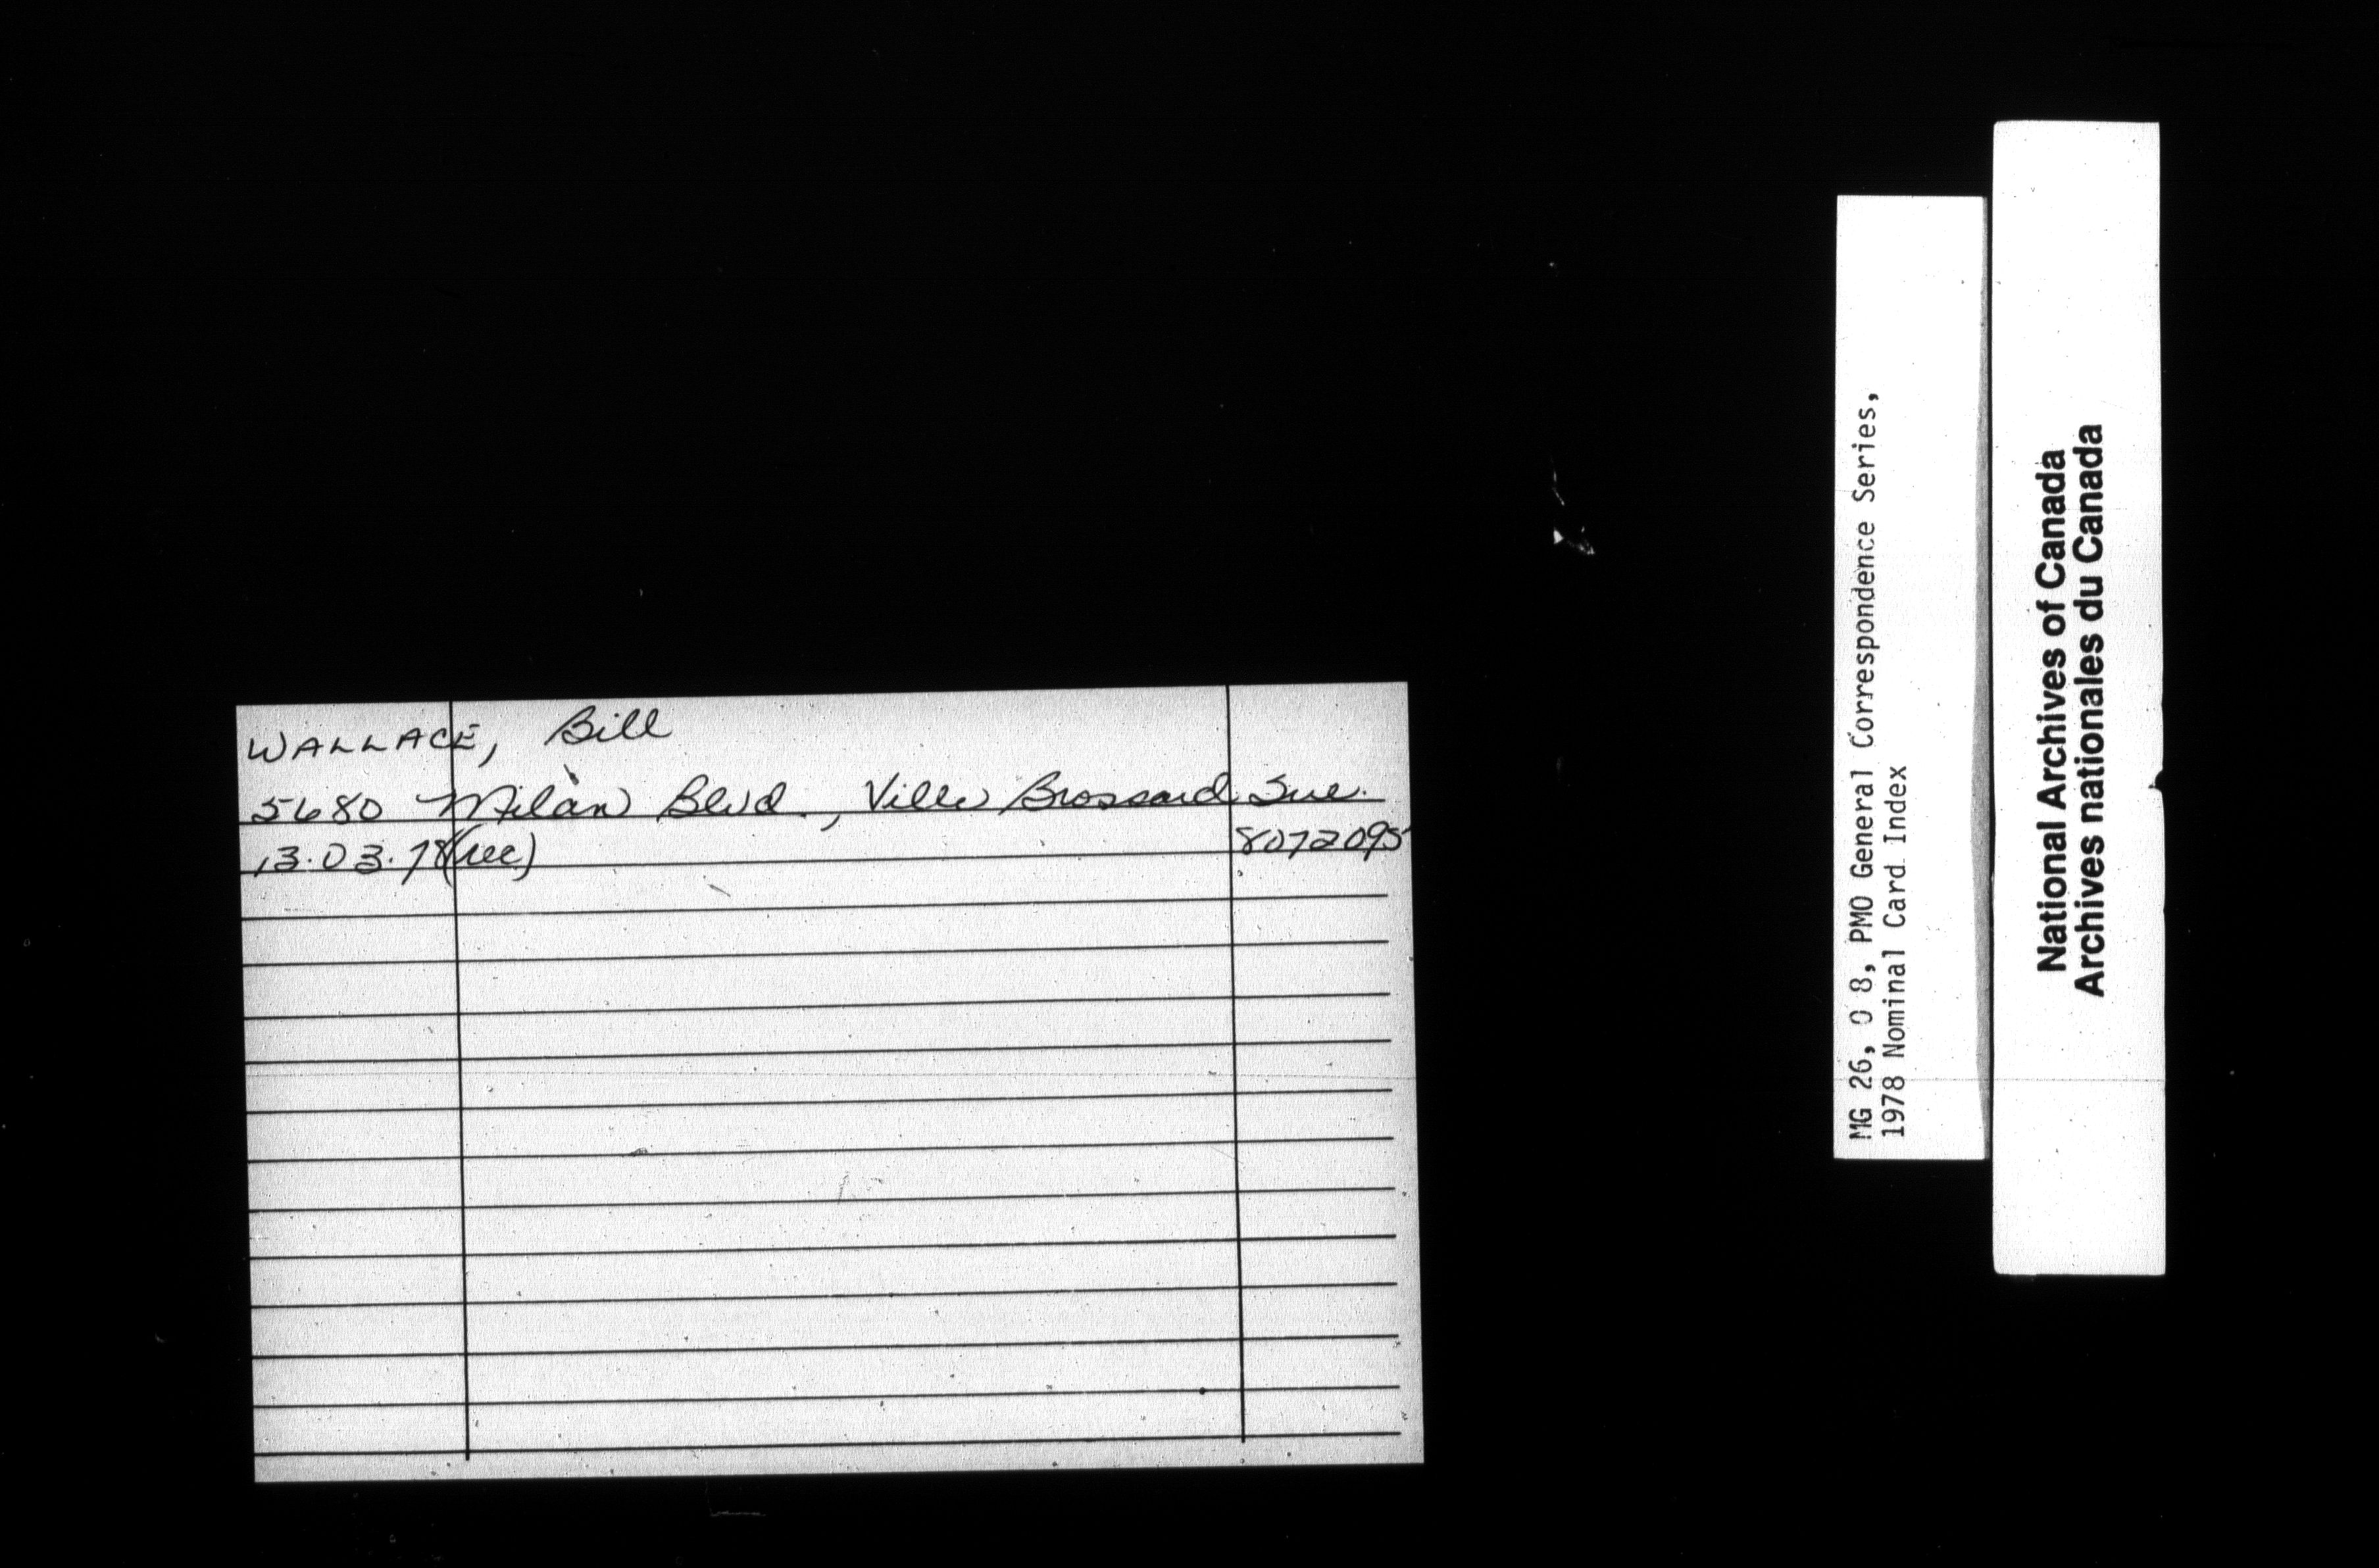 WALLACE, Bill
5680 Milan Blvd., Ville Brossard Que.
13.03.78 (rec) 8072095
MG 26, O 8, PMO General Correspondence Series,
1978 Nominal Card Index
National Archives of Canada
Archives nationales du Canada